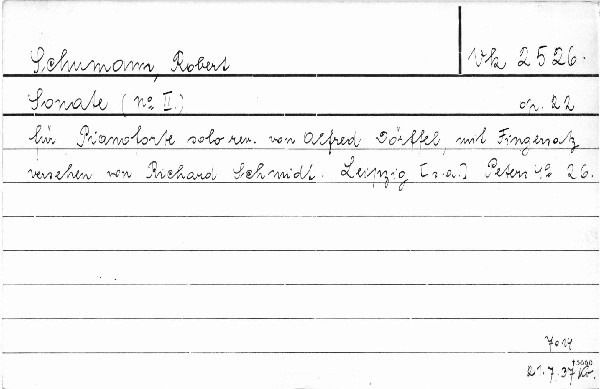 Schumann, Robert Vk 2526.
Sonate (no II.) op. 22
für Pianoforte solo rev. von Alfred Dörffel, mit Fingersatz
versehen von Richard Schmidt. Leipzig [s.a.] Peters 4º 26.
21.7.37